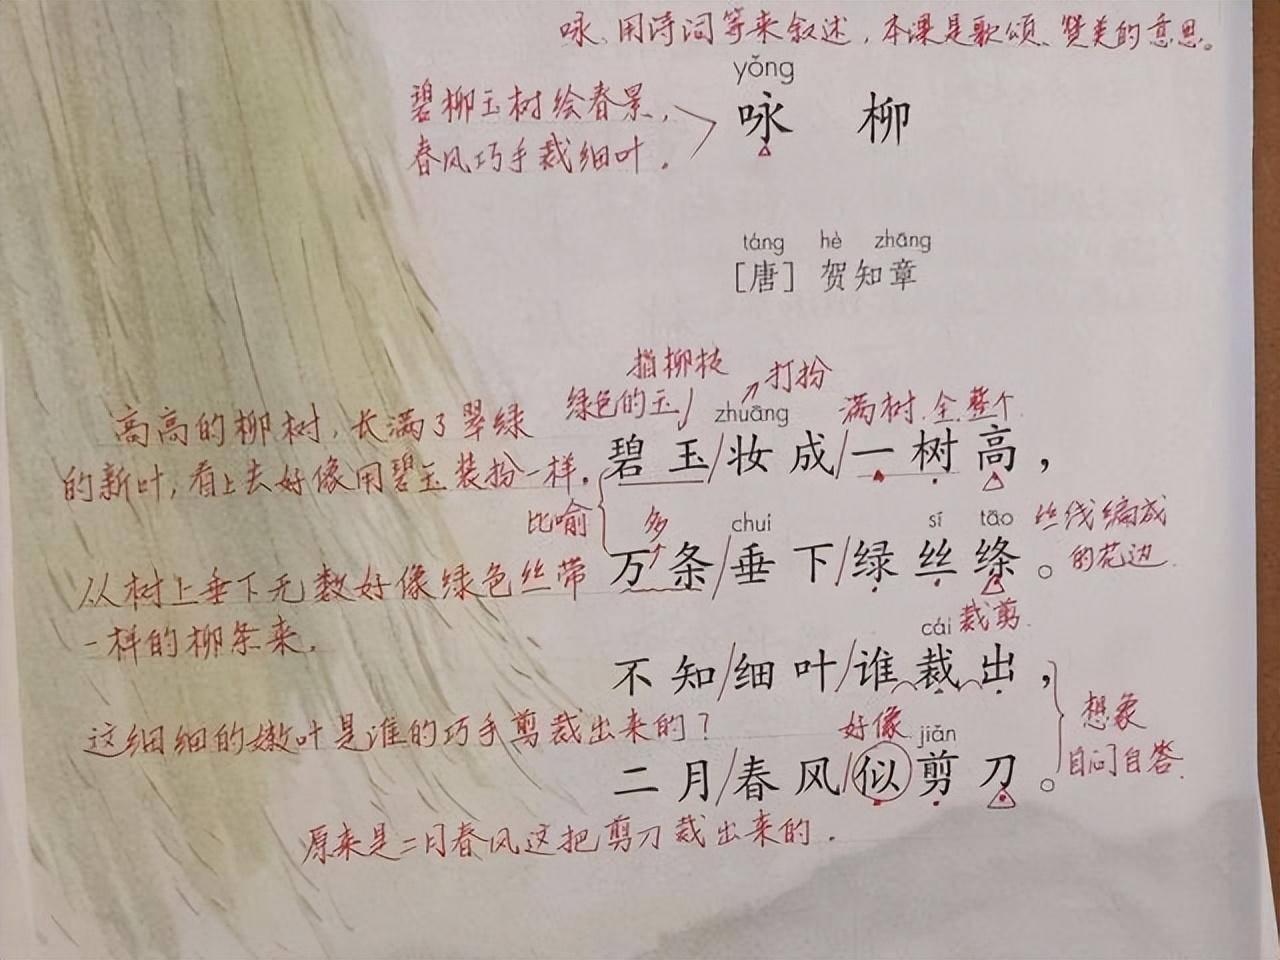 咏、用诗词等来叙述，本课是歌颂、赞美的意思。
yǒng
咏 柳
碧柳玉树绘春景，
春风巧手裁细叶。
táng hè zhāng
[唐] 贺知章
指柳枝
绿色的玉
打扮
满树 全 整个
zhuāng
碧玉/妆成/一树高，
高高的柳树，长满了翠绿
的新叶，看上去好像用碧玉装扮一样。
比喻
多
chuí sī tāo
万条/垂下/绿丝绦。
丝线编成
的花边
从树上垂下无数好像绿色丝带
一样的柳条来。
cái 裁剪
不知/细叶/谁裁出，
这细细的嫩叶是谁的巧手剪裁出来的？
好像 jiǎn
二月/春风/似剪刀。
想象
自问自答
原来是二月春风这把剪刀裁出来的。